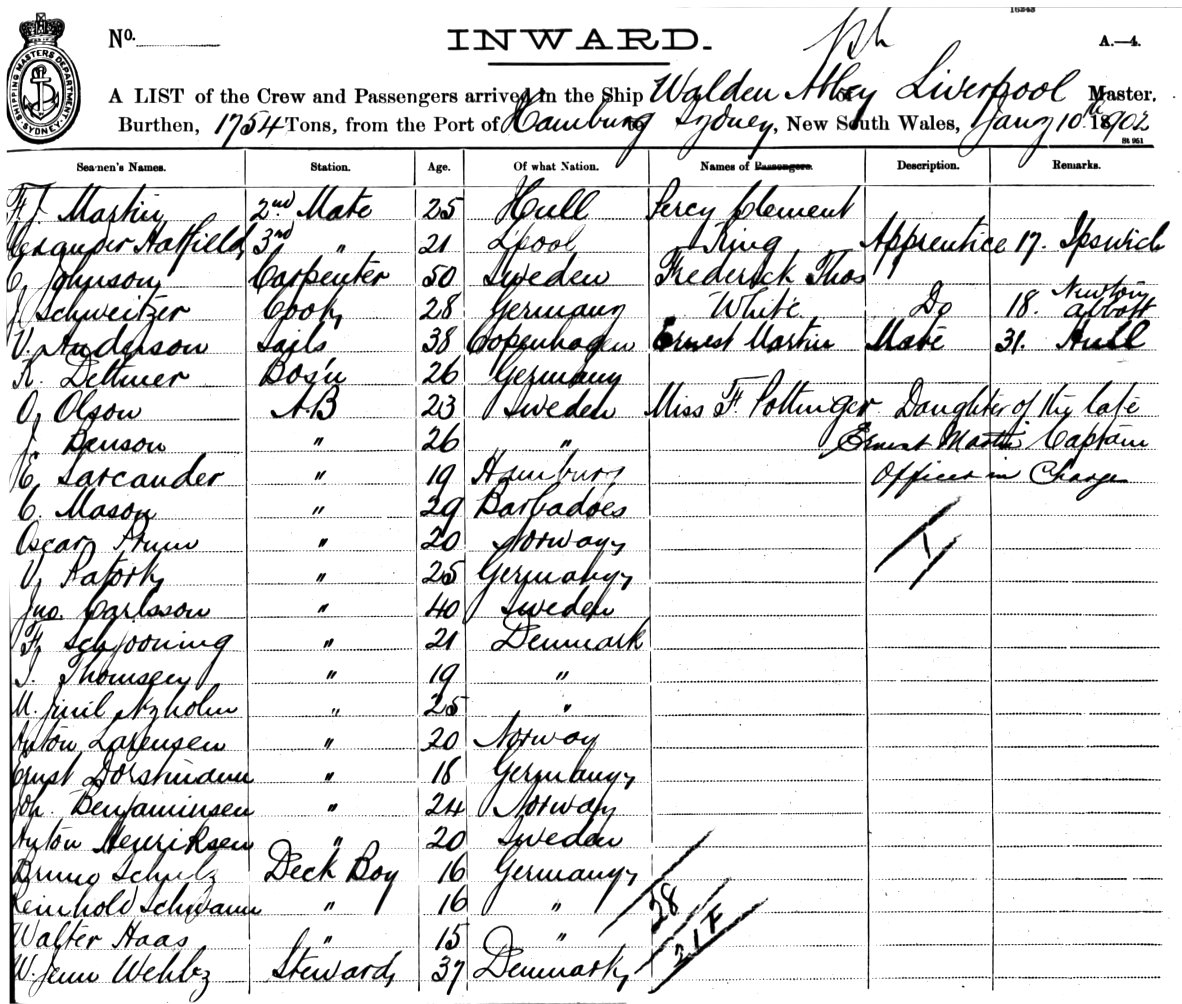 16343
SHIPPING MASTERS DEPARTMENT SYDNEY
No.
INWARD.
A.—4.
A LIST of the Crew and Passengers arrived in the Ship Walden Abbey of Liverpool Master,
Burthen, 1754 Tons, from the Port of Hamburg to Sydney, New South Wales, Jany 10th 1902
St 951
Seamen's Names. Station. Age. Of what Nation. Names of Passengers. Description. Remarks.
F. J. Martin 2nd Mate 25 Hull Percy Clement
Hatfield 3rd " 21 Lpool King Apprentice 17. Ipswich
C. Johnson Carpenter 50 Sweden Frederick Thos
J. Schweitzer Cook 28 Germany White Do 18. Newton Abbott
V. Anderson Sails 38 Copenhagen Ernest Martin Mate 31. Hull
K. Dettmer Bos'n 26 Germany
O. Olson A.B 23 Sweden Miss F. Pottinger Daughter of the late
J. Benson " 26 " Ernest Martin Captain
E. Sarcander " 19 Hamburg Officer in Charge
C. Mason " 29 Barbadoes
Oscar Prum " 20 Norway
V. Ratork " 25 Germany
Jno. Carlsson " 40 Sweden
F. Schjooning " 21 Denmark
T. Thomsen " 19 "
M. Nyholm " 25 "
Anton Larensen " 20 Norway
Ernst " 18 Germany
Joh. Benjaminsen " 24 Norway
Anton Henriksen " 20 Sweden
Bruno Schulz Deck Boy 16 Germany
Reinhold Schwann " 16 " 28
Walter Haas " 15 " 21 F
W. Wehbz Steward 37 Denmark